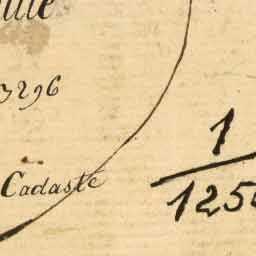 3296
Cadaste
1
125